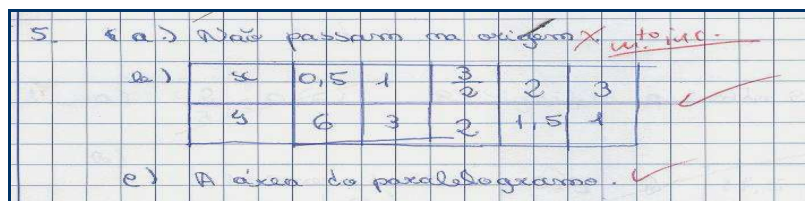 5. a) Não passam na origem x m.to inc.
b) x 0,5 1 3/2 2 3
y 6 3 2 1,5 1
c) A área do paralelogramo.